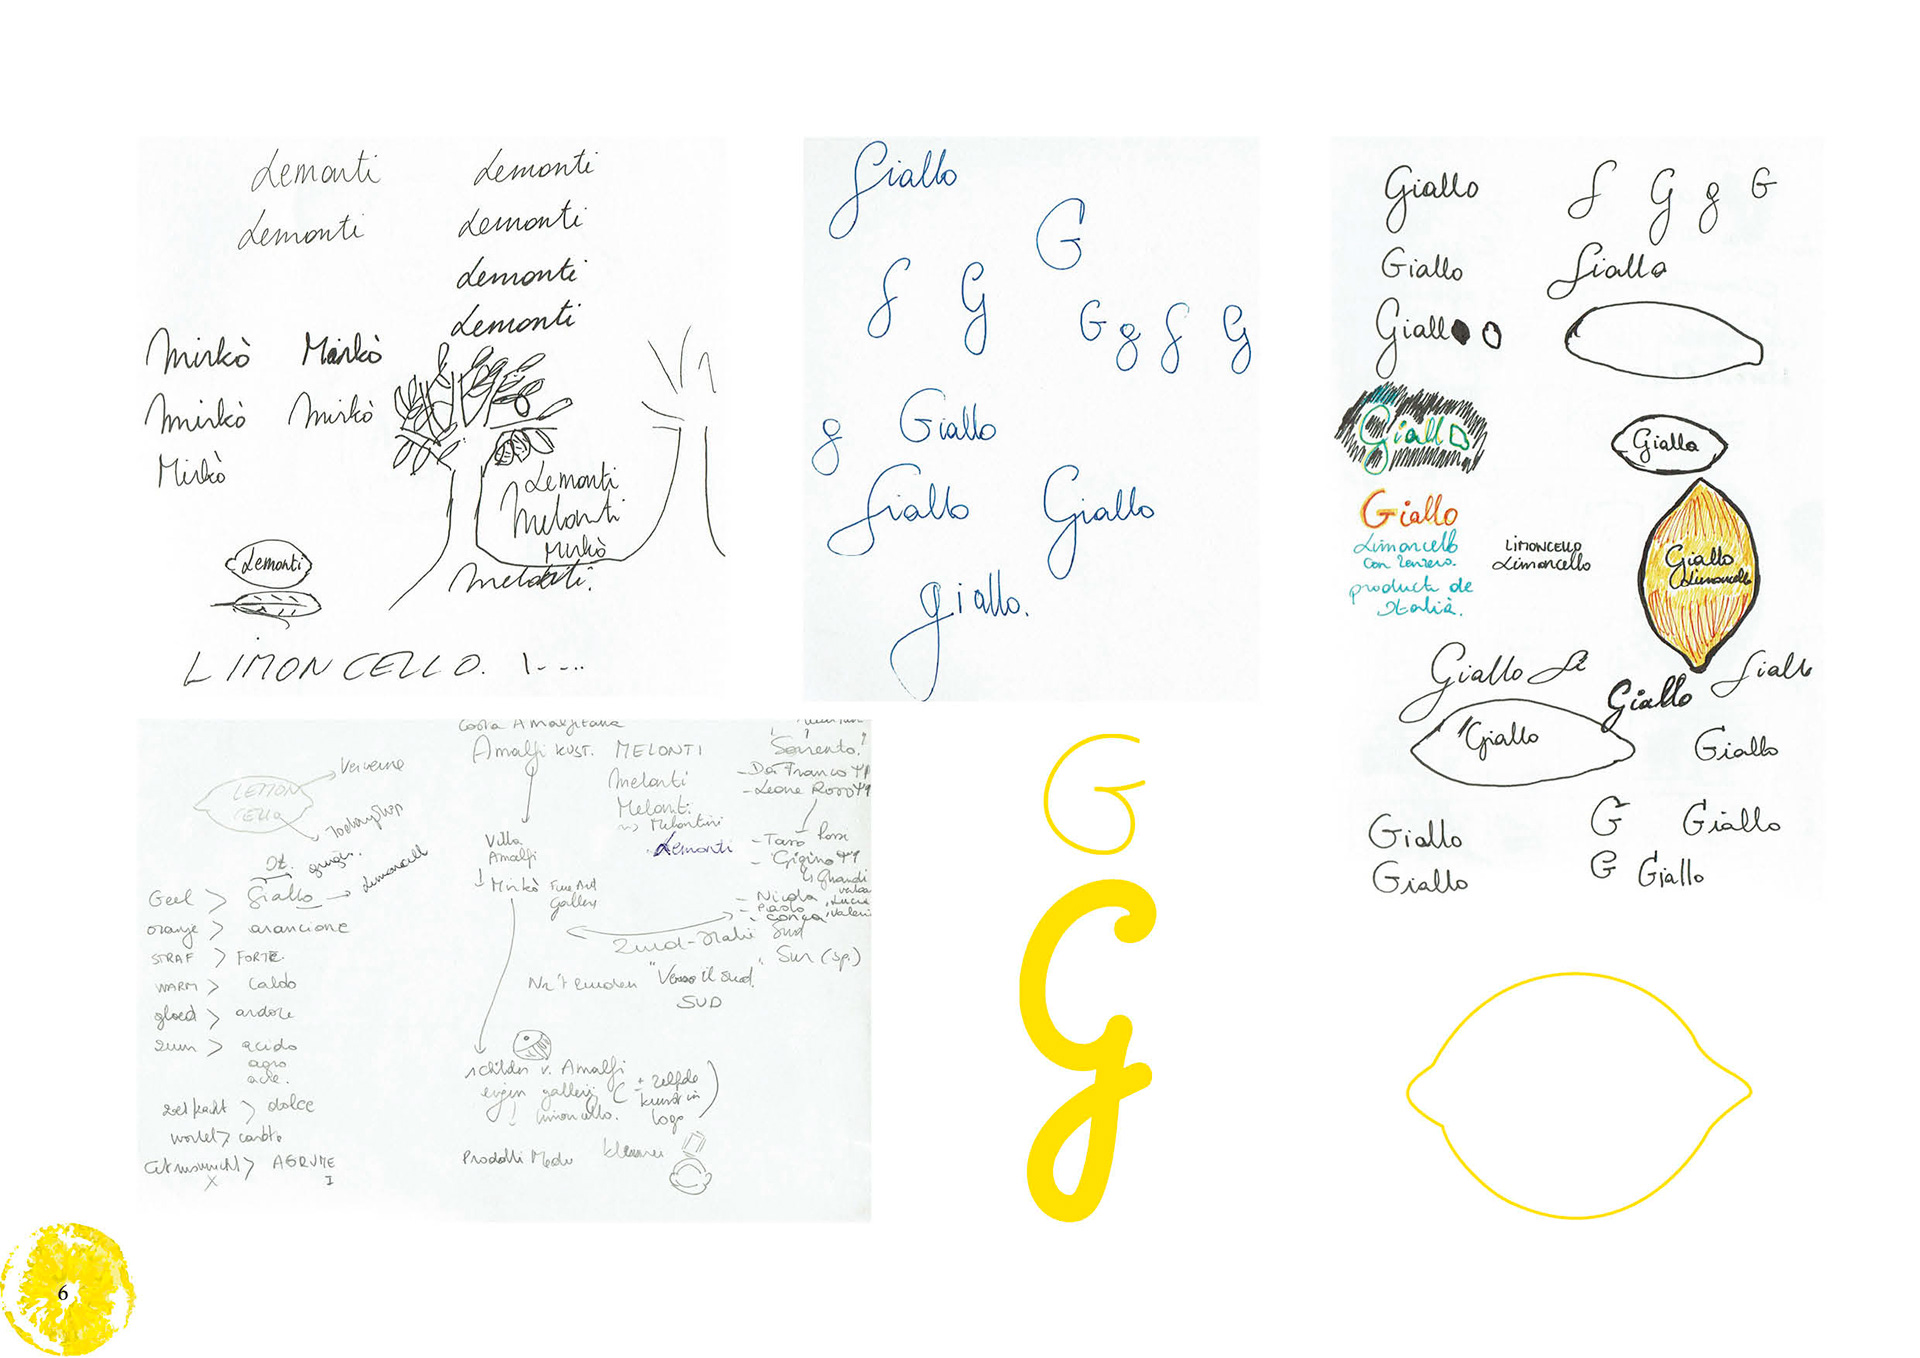 Lemonti Lemonti
Lemonti Lemonti
Lemonti
Lemonti
Mirkò Mirkò
Mirkò Mirkò
Mirkò
Lemonti
Melonti
Mirkò
Melonti.
Lemonti
LIMONCELLO.
Giallo
G
G G
G g G G
g Giallo
Giallo Giallo
giallo.
Giallo G G g G
Giallo Giallo
Giallo
Giallo
Giallo
Giallo
Limoncello
con zenzero.
producta de
Italià.
LIMONCELLO
Limoncello
Giallo
Limoncello
Giallo Gi
Giallo Giallo
Giallo
Giallo
Giallo G Giallo
Giallo G Giallo
Costa Amalfitana
Amalfi KUST.
Villa
Amalfi
Mirkò Fine Art
Gallery
MELONTI
Melonti
Melonti
Melontini
Lemonti
Sorrento.
- Da Franco
- Leone Rosso
- Taso Rosse
- Gigino
- Nicola
- Paolo
Sud
Zuid-Italië
Sur (sp.)
"Verso il sud"
SUD
LEMON
CELLO
Ververne
It.
Geel > Giallo → Limoncell
oranje > arancione
STRAF > FORTE.
WARM > caldo
gloed > ardore
zuur > acido
agro
acre.
zeekracht > dolce
Citrusvrucht > AGRUME
schilder v. Amalfi
eigen gallerij
limoncello.
+ zelfde
kunst in
logo
Prodotti Medu
kleuren
G
G
6